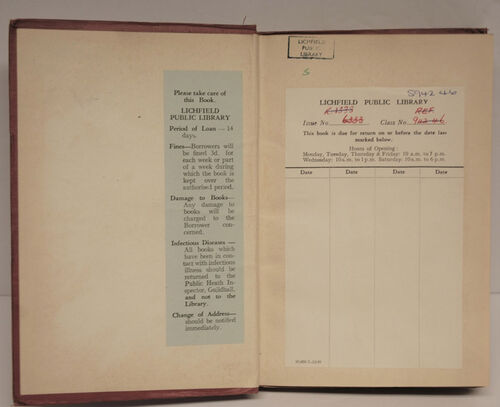 Please take care of
this Book.
LICHFIELD
PUBLIC LIBRARY
Period of Loan — 14
days.
Fines—Borrowers will
be fined 3d. for
each week or part
of a week during
which the book is
kept over the
authorised period.
Damage to Books—
Any damage to
books will be
charged to the
Borrower con-
cerned.
Infectious Diseases —
All books which
have been in con-
tact with infectious
illness should be
returned to the
Public Heath In-
spector, Guildhall,
and not to the
Library.
Change of Address—
should be notified
immediately.
LICHFIELD
PUBLIC
LIBRARY
S
S942.46
LICHFIELD PUBLIC LIBRARY
REF
Issue No. 6333 Class No. 942.46
This book is due for return on or before the date last
marked below.
Hours of Opening:
Monday, Tuesday, Thursday & Friday: 10 a.m. to 7 p.m.
Wednesday: 10 a.m. to 1 p.m. Saturday: 10 a.m. to 6 p.m.
Date Date Date Date